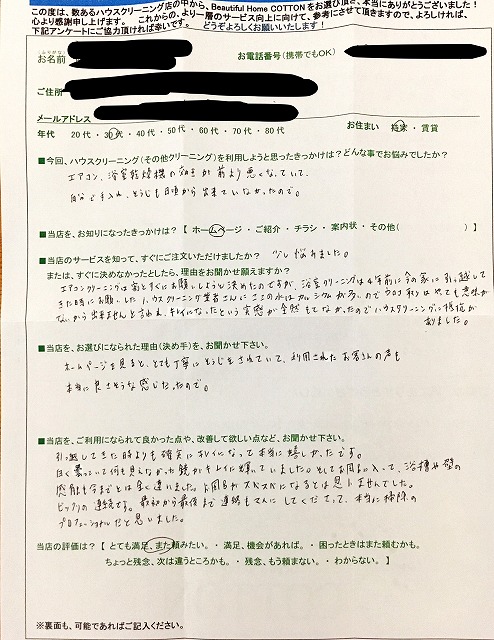 この度は、数あるハウスクリーニング店の中から、Beautiful Home COTTONをお選び頂き、本当にありがとうございました!
心より感謝申し上げます。 これからの、より一層のサービス向上に向けて、参考にさせて頂きますので、よろしければ、
下記アンケートにご協力頂ければ幸いです。 どうぞよろしくお願いいたします!
お名前 お電話番号(携帯でもOK)
ご住所
メールアドレス
年代 20代・30代・40代・50代・60代・70代・80代 お住まい 持家・賃貸
■今回、ハウスクリーニング(その他クリーニング)を利用しようと思ったきっかけは?どんな事でお悩みでしたか?
エアコン、浴室乾燥機の効きが前より悪くなっていて、
自分で手入れ、そうじも日頃から出来ていなかったので。
■当店を、お知りになったきっかけは?【 ホームページ・ご紹介・チラシ・案内状・その他( )
■当店のサービスを知って、すぐにご注文いただけましたか? 少し悩みました。
または、すぐに決めなかったとしたら、理由をお聞かせ願えますか?
エアコンクリーニングは割とすぐにお願いしようと決めたのですが、浴室クリーニングは4年前に今の家に引っ越して
きた時にお願いしたハウスクリーニング業者さんにここの水はカルシウムが多いのでウロコ取りはやっても意味が
ないから出来ませんと言われ、キレイになったという実感が全然もてなかったのでハウスクリーニングに抵抗が
ありました。
■当店を、お選びになられた理由(決め手)を、お聞かせ下さい。
ホームページを見ると、とても丁寧にそうじをされていて、利用されたお客さんの声も
本当に良さそうな感じだったので。
■当店を、ご利用になられて良かった点や、改善して欲しい点など、お聞かせ下さい。
引っ越してきた時よりも確実にキレイになって本当に嬉しかったです。
白く曇っていて何も見えなかった鏡がキレイに輝いていました。そしてお風呂に入って、浴槽や壁の
感触も今までとは全く違いました。お風呂がスベスベになるとは思いませんでした。
ビックリの連続です。最初から最後まで連絡もマメにしてくださって、本当に掃除の
プロフェッショナルだと思いました。
当店の評価は?【 とても満足、また頼みたい。・満足、機会があれば。・困ったときはまた頼むかも。
ちょっと残念、次は違うところかも。・残念、もう頼まない。・わからない。】
※裏面も、可能であればご記入ください。